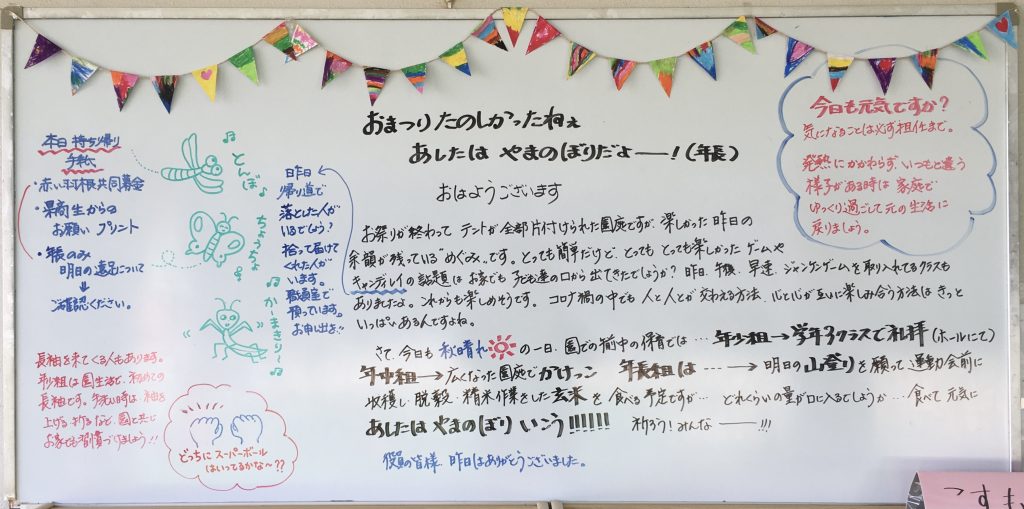 おまつり たのしかったねぇ
あしたは やまのぼりだよー！(年長)
おはようございます
お祭りが終わって テントが全部片付けられた園庭ですが、楽しかった昨日の
余韻が残っている"めぐみ"です。とっても簡単だけど、とっても とっても楽しかった ゲームや
キャンディレイの話題は お家でも 子ども達の口から出てきたでしょうか？昨日、午後、早速、ジャンケンゲームを取り入れてるクラスも
ありましたよ。これからも楽しめそうです。コロナ禍の中でも 人と人とが交わえる方法、心と心が互いに楽しみ合う方法は きっと
いっぱいあるんですよね。
さて、今日も 秋晴れ の一日、園での午前中の保育では… 年少組→学年3クラスで礼拝(ホールにて)
年中組→広くなった園庭で かけっこ 年長組は ----→ 明日の山登りを願って 運動会前に
収穫し、脱穀、精米作業をした玄米を 食べる予定ですが… どれくらいの量がお口に入るでしょうか… 食べて 元気に
あしたは やまのぼり いこう!!!!!! 祈ろう！みんなー!!!
役員の皆様、昨日はありがとうございました。
本日 持ち帰り
手紙
・赤い羽根共同募金
・果商生からの
お願い プリント
・年長のみ
明日の遠足について
↓
ご確認ください。
とんぼ
ちょうちょ
かーまきりー
昨日
帰り道で
落とした人が
いるでしょう？
拾って届けて
くれた人が
います。
職員室で
預っています。
お申し出を!!
長袖を来てくる人もあります。
年少組は園生活で、初めての
長袖です。手洗い時は、袖を
上げる、折るなど、園と共に
お家でも習慣づけましょう!!
どっちに スーパーボール
はいってるかな〜??
今日も元気ですか？
気になることは必ず担任まで。
発熱にかかわらず、いつもと違う
様子がある時は 家庭で
ゆっくり過ごして 元の生活に
戻りましょう。